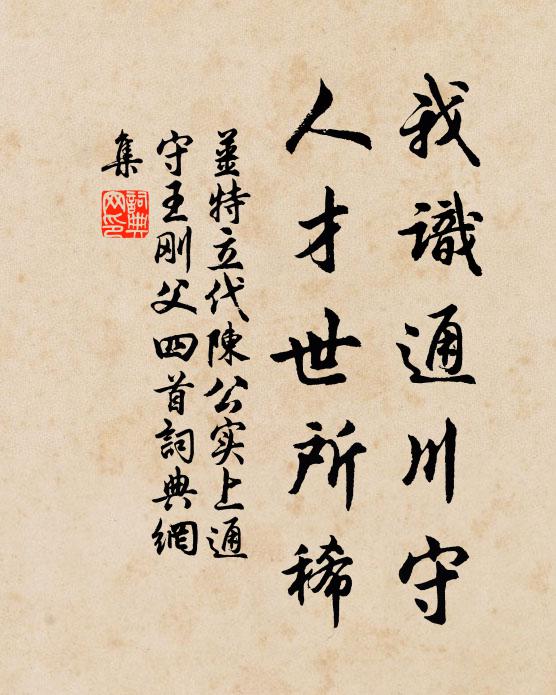 我識通川守
人才世所稀
姜特立代陳公实上通
守王刚父四首詞典網
集
詞典网印